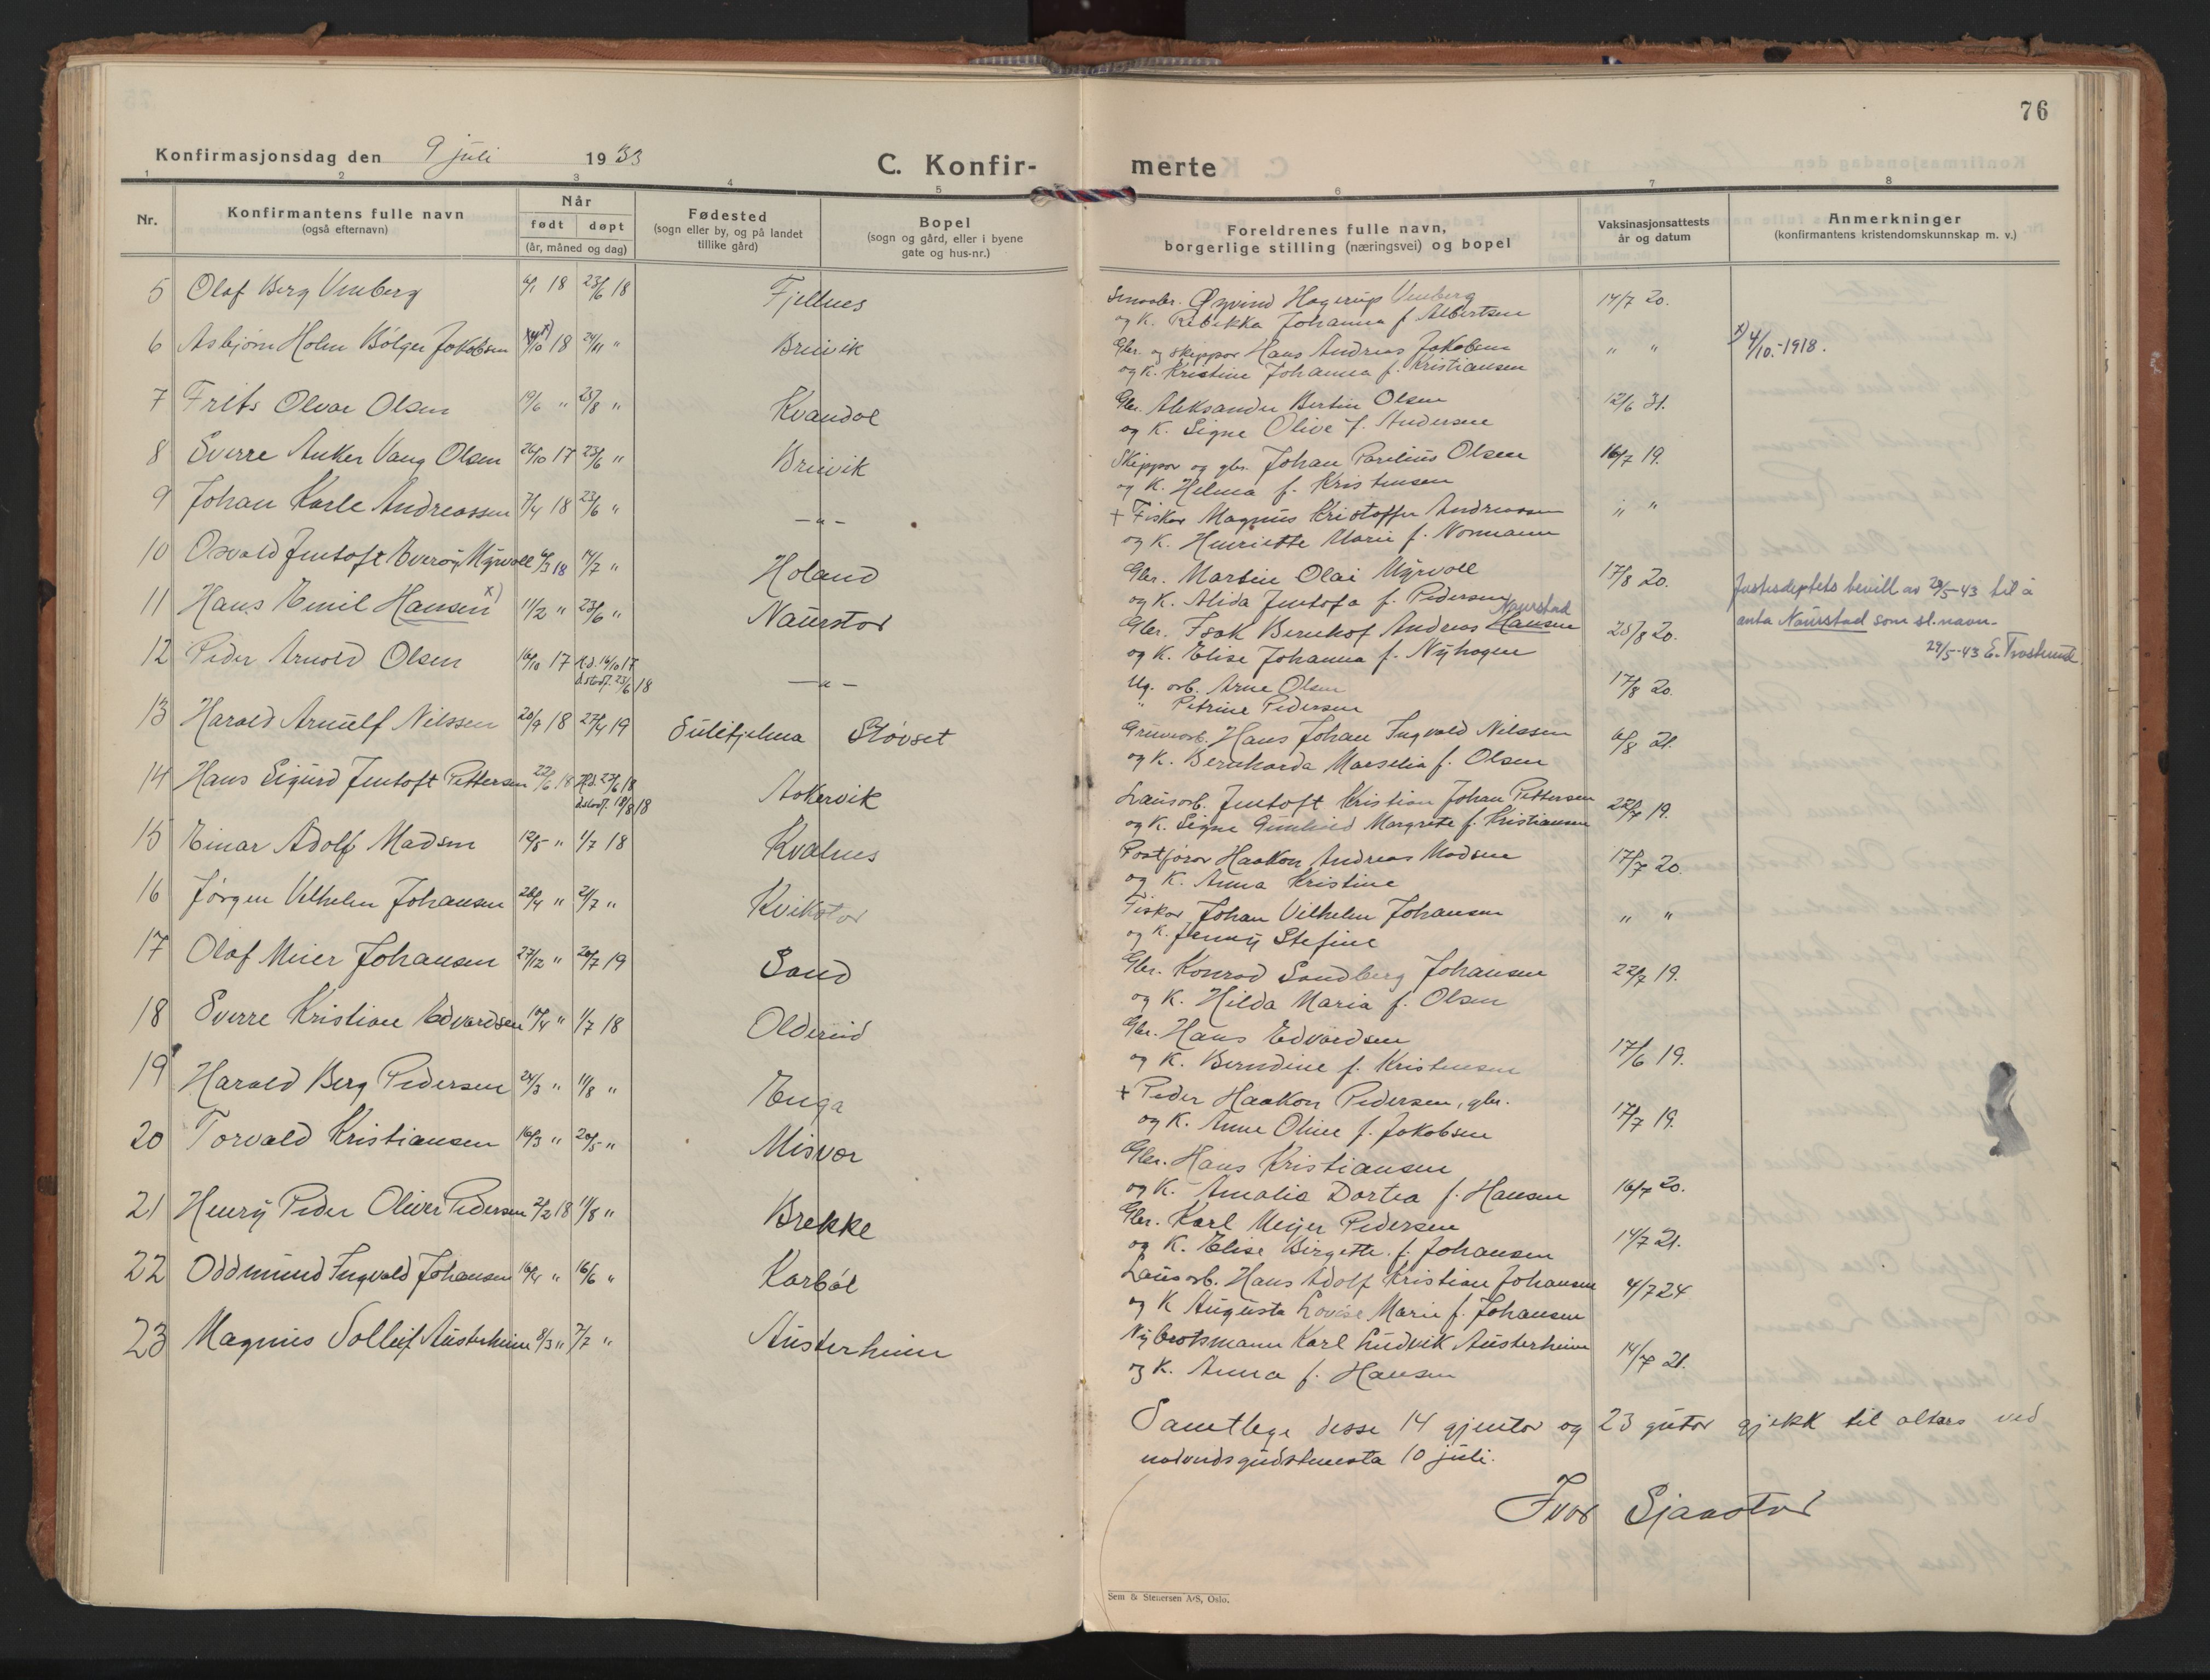 76
Konfirmasjonsdag den 9 juli 1933
C. Konfir- merte
1 2 3 4 5 6 7 8
Nr.
Konfirmantens fulle navn
(også efternavn)
Når
født døpt
(år, måned og dag)
Fødested
(sogn eller by, og på landet
tillike gård)
Bopel
(sogn og gård, eller i byene
gate og hus-nr.)
Foreldrenes fulle navn,
borgerlige stilling (næringsvei) og bopel
Vaksinasjonsattests
år og datum
Anmerkninger
(konfirmantens kristendomskunnskap m. v.)
5 Olaf Berg Vinberg 6/1 18 23/6 18 Fjellnes Smaabr. Øyvind Hagerup Vinberg 14/7 20.
og K. Rebekka Johanna f. Albertsen
6 Asbjørn Holm Bølger Jakobsen x) 18 24/11 " Breivik Gbr. og skipper Hans Andreas Jakobsen " " x) 4/10.-1918.
og K. Kristine Johanna f. Kristiansen
7 Frits Olvar Olsen 19/6 " 25/8 " Kvandal Gbr. Aleksander Bertin Olsen 12/6 31.
og K. Signe Olive f. Andersen
8 Sverre Anker Vang Olsen 26/10 17 23/6 " Breivik Skipper og gbr. Johan Parelius Olsen 16/7 19.
og K. Helma f. Kristensen
9 Johan Karle Andreassen 7/4 18 23/6 " —"— + Fiskar Magnus Kristoffer Andreassen " "
og K. Henriette Marie f. Normann
10 Osvald Jentoft Everøy Myrvoll 6/3 18 14/7 " Holand Gbr. Martin Olai Myrvoll 17/8 20.
og K. Alida Jentofa f. Pedersen
11 Hans Emil Hansen x) 11/2 " 23/6 " Naurstad Gbr. Isak Bernhof Andreas Hansen Naurstad 25/8 20. Justisdeptets bevill av 29/5-43 til å
og K. Elise Johanna f. Nyhagen anta Naurstad som sl.navn.
29/5-43 E.
12 Peder Arnold Olsen 16/10 17 H.d. 16/10 17 —"— Ug. arb. Arne Olsen 17/8 20.
d.stadf. 23/6 18 " Petrine Pedersen
13 Harald Arnulf Nilssen 20/9 18 27/4 19 Sulitjelma Støvset Gruvearb. Hans Johan Ingvald Nilssen 6/8 21.
og K. Bernharda Marselia f. Olsen
14 Hans Sigurd Jentoft Pettersen 22/6 18 H.d. 23/6 18 Askervik Lausarb. Jentoft Kristian Johan Pettersen 22/7 19.
d.stadf. 18/8 18 og K. Signe Gunhild Margrete f. Kristiansen
15 Einar Adolf Madsen 12/5 " 1/7 18 Kvalnes Postførar Haakon Andreas Madsen 17/7 20.
og K. Anna Kristine
16 Jørgen Vilhelm Johansen 28/4 " 21/7 " Kvikstad Fiskar Johan Vilhelm Johansen " "
og K. Jenny Stefine
17 Olaf Meier Johansen 27/12 " 20/7 19 Sand Gbr. Konrad Sandberg Johansen 22/7 19.
og K. Hilda Maria f. Olsen
18 Sverre Kristian Edvardsen 10/4 " 1/7 18 Oldereid Gbr. Hans Edvardsen 17/6 19.
og K. Berndine f. Kristensen
19 Harald Berg Pedersen 24/3 " 11/8 " Enga + Peder Haakon Pedersen, gbr. 17/7 19.
og K. Anne Oline f. Jakobsen
20 Torvald Kristiansen 16/3 " 20/5 " Misvær Gbr. Hans Kristiansen 16/7 20.
og K. Amalia Dortea f. Hansen
21 Henry Peder Oliver Pedersen 2/2 18 11/8 " Brekke Gbr. Karl Meyer Pedersen 14/7 21.
og K. Elise Birgette f. Johansen
22 Oddmund Ingvald Johansen 16/4 " 16/6 " Karbøl Lausarb. Hans Adolf Kristian Johansen 4/7 24
og K Augusta Lovise Marie f. Johansen
23 Magnus Solleif Austerheim 8/3 " 7/7 " Austerheim Nybrotsmann Karl Ludvik Austerheim 14/7 21.
og K. Anna f. Hansen
Samtlege desse 14 gjentor og 23 gutar gjekk til altars ved
natverdsgudstenesta 10 juli.
Ivar Sjaastad
Sem & Stenersen A/S, Oslo.